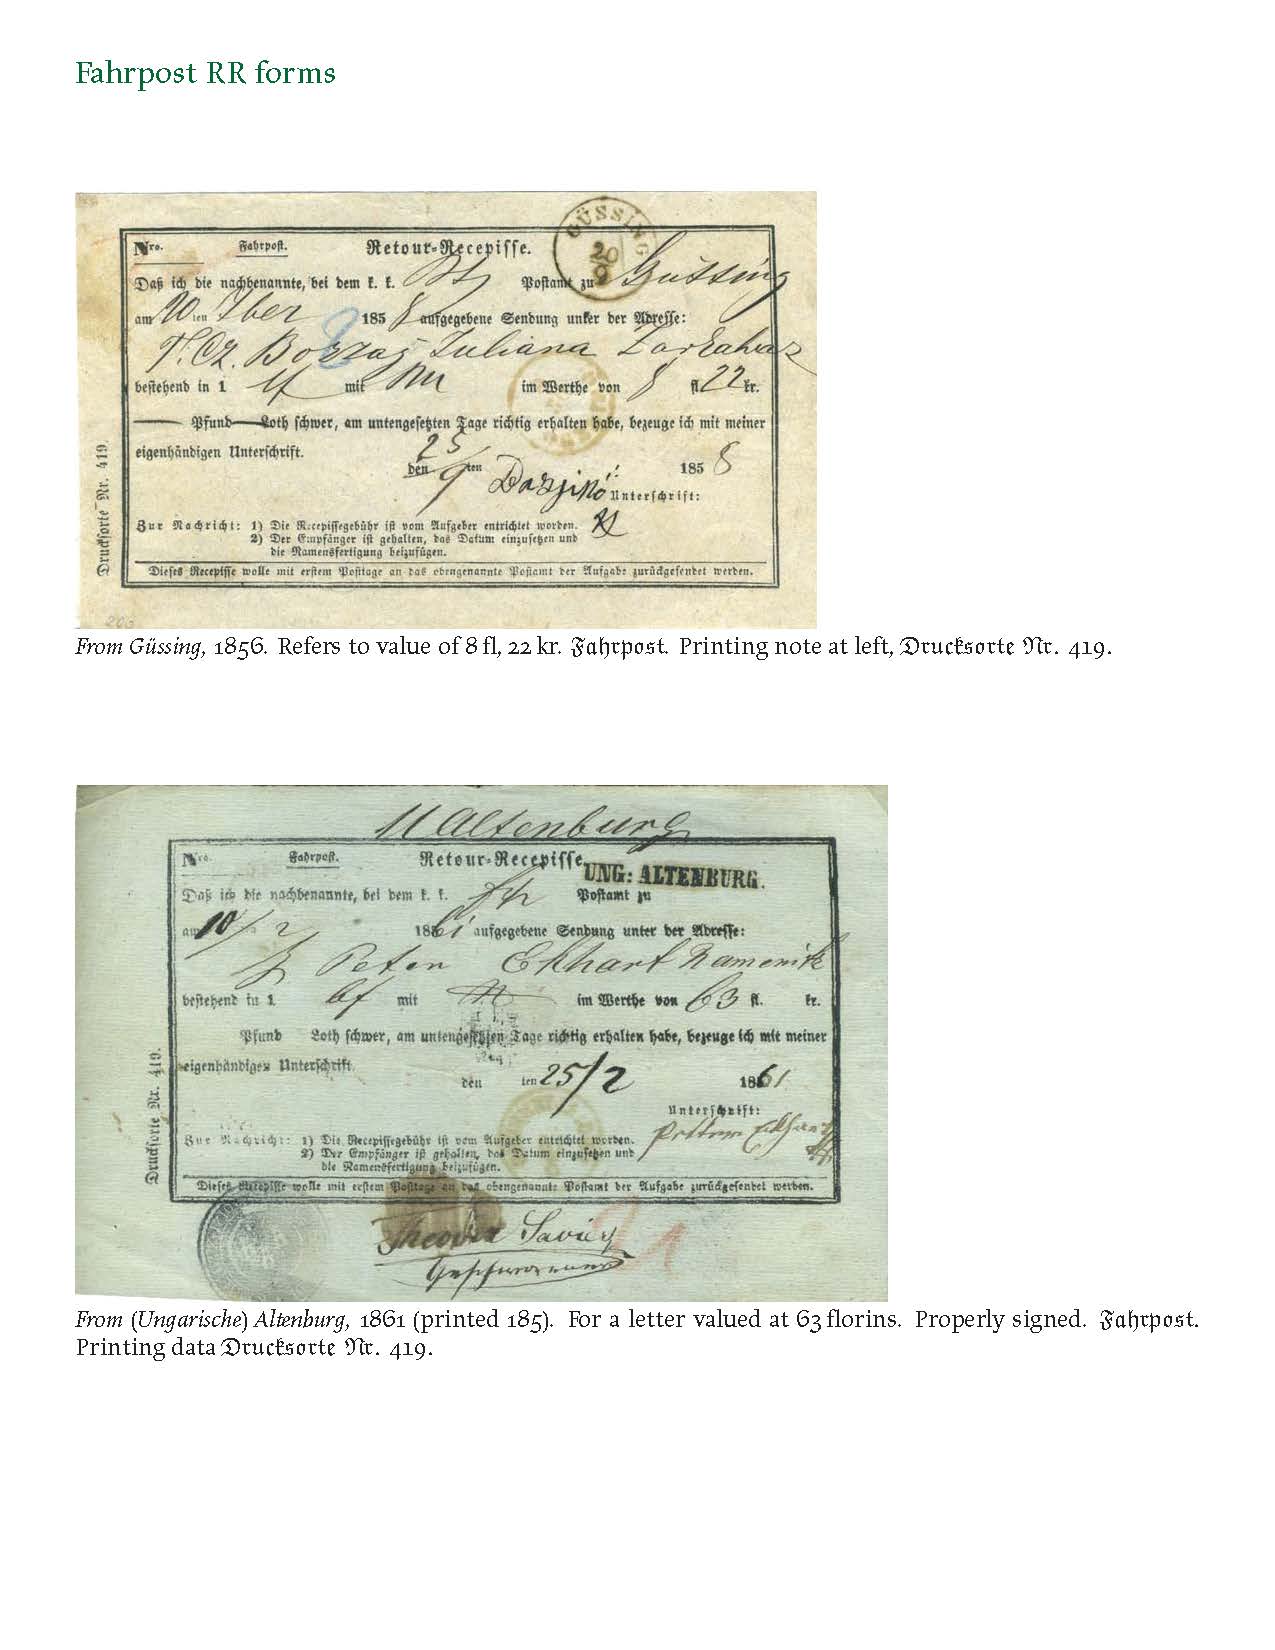 Fahrpost RR forms
GÜSSING
20
9
Nro. Fahrpost. Retour-Recepisse.
Daß ich die nachbenannte, bei dem k. k. Postamt zu Güssing
am 20 ten 7ber 1858 aufgegebene Sendung unter der Adresse:
Juliana
bestehend in 1 mit im Werthe von 8 fl. 22 kr.
Pfund Loth schwer, am untengesetzten Tage richtig erhalten habe, bezeuge ich mit meiner
eigenhändigen Unterschrift.
den 25/9 ten 1858
Unterschrift:
Zur Nachricht: 1) Die Recepissegebühr ist vom Aufgeber entrichtet worden.
2) Der Empfänger ist gehalten, das Datum einzusetzen und
die Namensfertigung beizufügen.
Dieses Recepisse wolle mit erstem Posttage an das obengenannte Postamt der Aufgabe zurückgesendet werden.
Drucksorte Nr. 419.
203
From Güssing, 1856. Refers to value of 8 fl, 22 kr. Fahrpost. Printing note at left, Drucksorte Nr. 419.
U Altenburg
Nro. Fahrpost. Retour-Recepisse.
UNG: ALTENBURG.
Daß ich die nachbenannte, bei dem k. k. Postamt zu
am 10/2 1861 aufgegebene Sendung unter der Adresse:
Peter Ekhart
bestehend in 1 mit im Werthe von 63 fl. kr.
Pfund Loth schwer, am untengesetzten Tage richtig erhalten habe, bezeuge ich mit meiner
eigenhändigen Unterschrift.
den ten 25/2 1861
Unterschrift:
Zur Nachricht: 1) Die Recepissegebühr ist vom Aufgeber entrichtet worden.
2) Der Empfänger ist gehalten, das Datum einzusetzen und
die Namensfertigung beizufügen.
Dieses Recepisse wolle mit erstem Posttage an das obengenannte Postamt der Aufgabe zurückgesendet werden.
Drucksorte Nr. 419.
From (Ungarische) Altenburg, 1861 (printed 185). For a letter valued at 63 florins. Properly signed. Fahrpost.
Printing data Drucksorte Nr. 419.